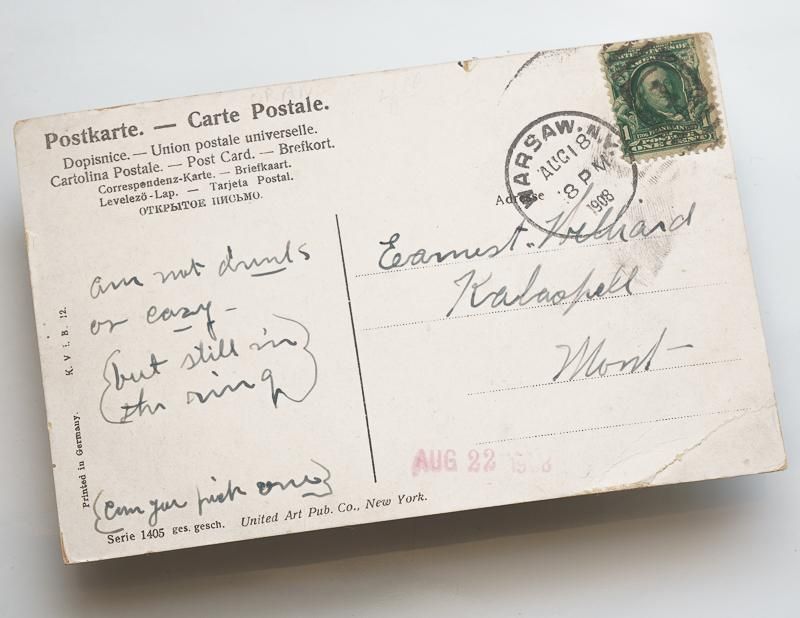 Postkarte. — Carte Postale.
Dopisnice. — Union postale universelle.
Cartolina Postale. — Post Card. — Brefkort.
Correspondenz-Karte. — Briefkaart.
Levelező-Lap. — Tarjeta Postal.
ОТКРЫТОЕ ПИСЬМО.
WARSAW, N.Y.
AUG 18
8 PM
1908
1
ONE CENT
Adresse
Earnest Hilliard
Kalaspell
Mont
am not drunk
or cazy
(but still in
the ring)
(can you pick one)
AUG 22 1908
K. V i. B. 12.
Printed in Germany.
Serie 1405 ges. gesch. United Art Pub. Co., New York.